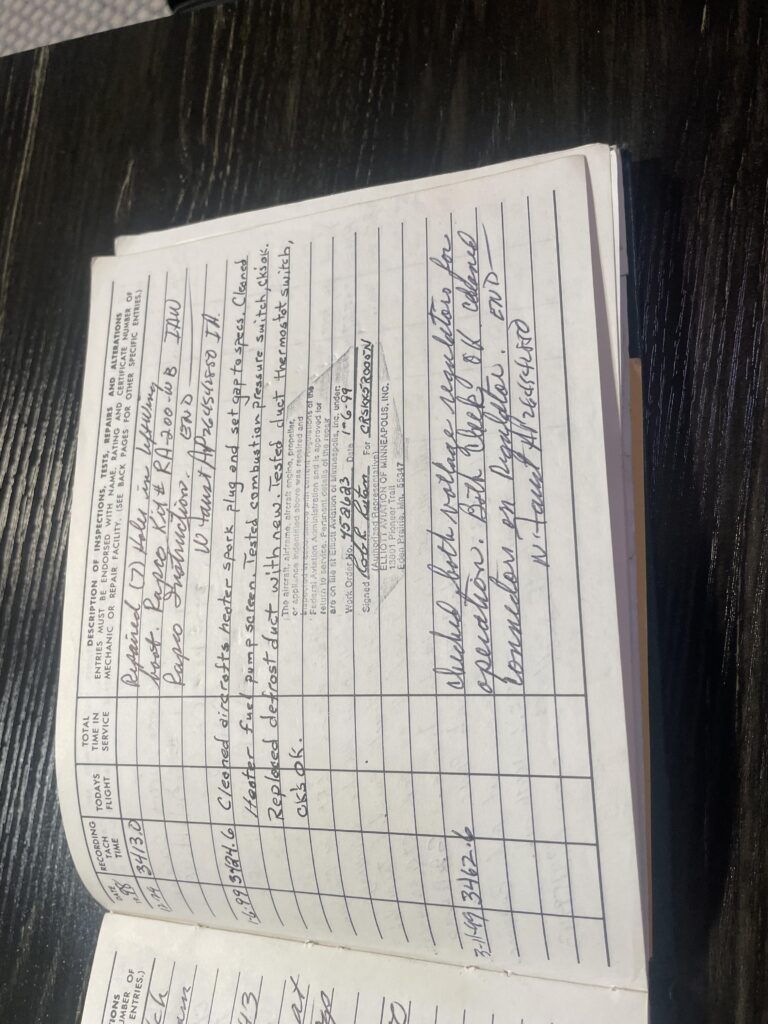 DATE
19 98
RECORDING
TACH
TIME
TODAYS
FLIGHT
TOTAL
TIME IN
SERVICE
DESCRIPTION OF INSPECTIONS, TESTS, REPAIRS AND ALTERATIONS
ENTRIES MUST BE ENDORSED WITH NAME, RATING AND CERTIFICATE NUMBER OF
MECHANIC OR REPAIR FACILITY. (SEE BACK PAGES FOR OTHER SPECIFIC ENTRIES.)
3413.0 Repaired (7) Holes in
boot. Rapco Kit # RA-200-WB IAW
Rapco Instruction. END
W Faust AP264541550 IA
1-6-99 3424.6 Cleaned aircrafts heater spark plug and set gap to specs. Cleaned
Heater fuel pump screen. Tested combustion pressure switch, cks ok.
Replaced defrost duct with new. Tested duct thermostat switch,
cks OK.
The aircraft, airframe, aircraft engine, propeller,
or appliance indentified above was repaired and
Federal Aviation Administration and is approved for
return to service. Pertinent details of the repair
are on file at Elliott Aviation of Minneapolis, Inc. under:
Work Order No. Date 1-6-99
Signed For CRSKX52R005N
(Authorized Representative)
ELLIOTT AVIATION OF MINNEAPOLIS, INC.
13801 Pioneer Trail
Eden Prairie, Mn. 55347
3-11-99 3462.6 Checked both voltage regulators for
operation. Both Check OK. Cleaned
Connectors on Regulator. END
W. Faust AP264541550
IONS
UMBER OF
ENTRIES.)